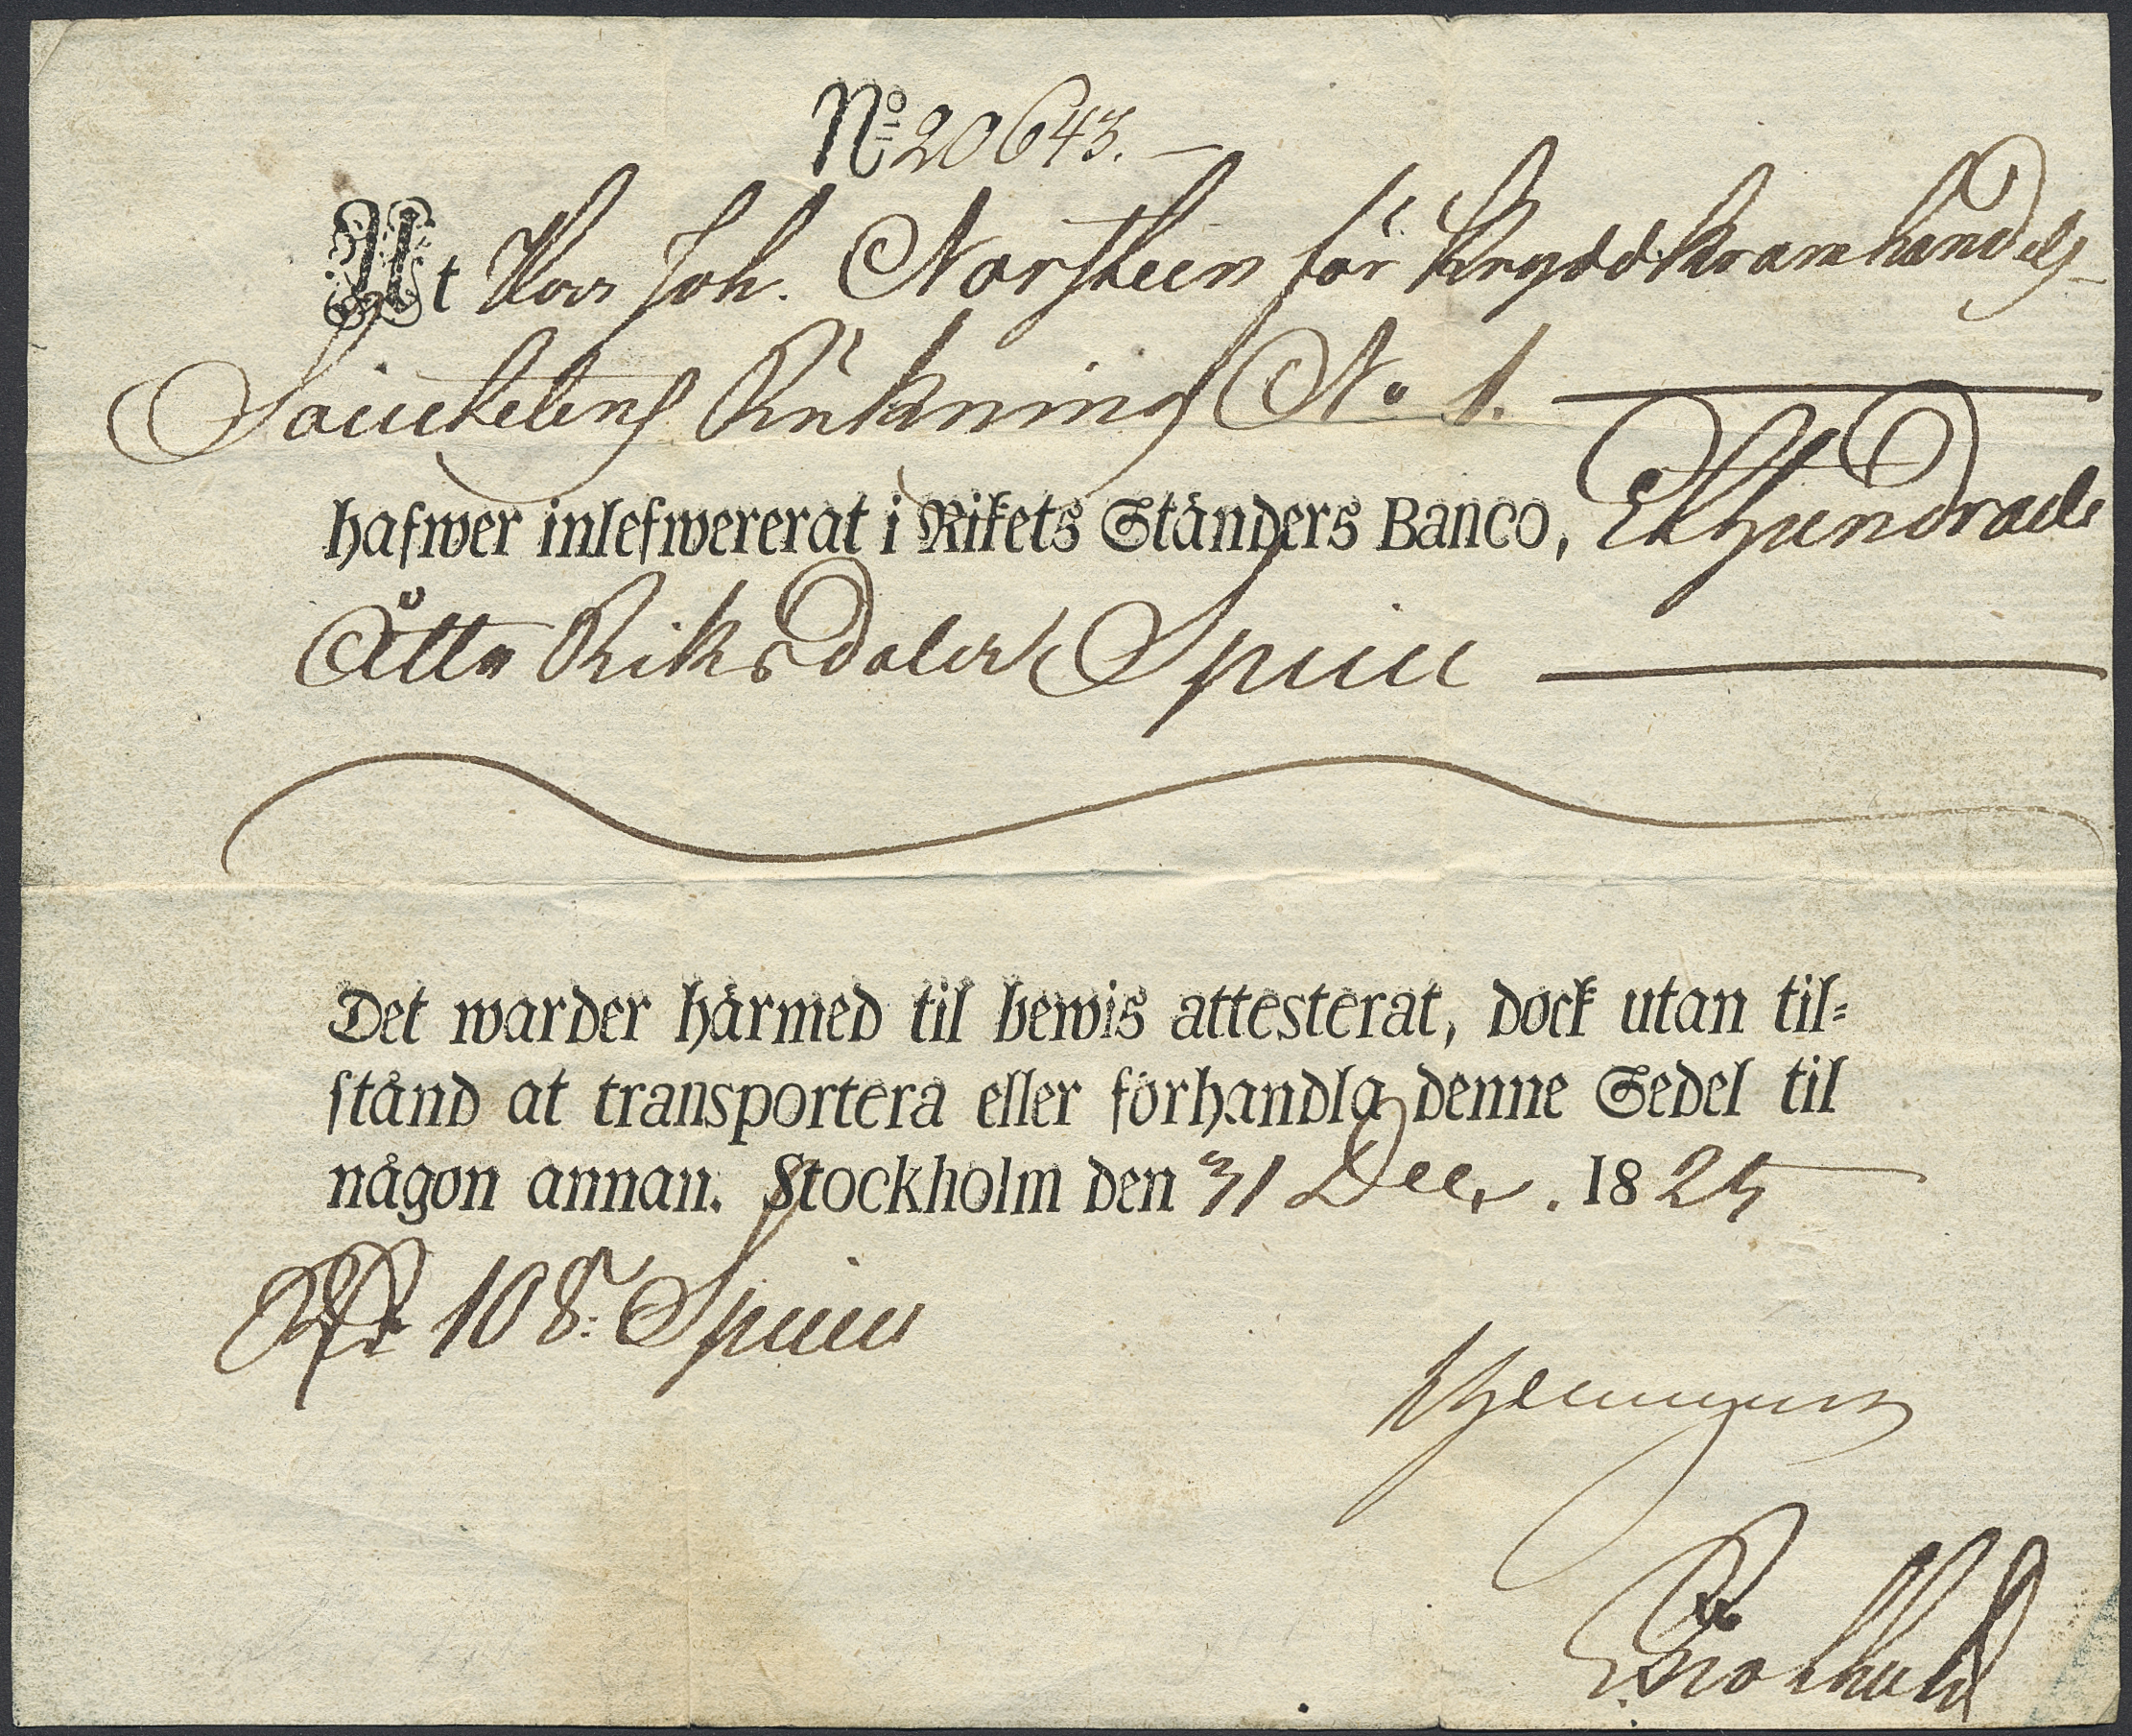 No 20643.
At Herr Joh. Norsteen för Kryddkramhandels
Societetens Räkning No 1.
hafwer inlefwererat i Rikets Ständers Banco, Etthundrade
Åtta Riksdaler Specie
Det warder härmed til bewis attesterat, dock utan til=
stånd at transportera eller förhandla denne Sedel til
någon annan. Stockholm den 31 Decr. 1825
Rdr 108. Specie